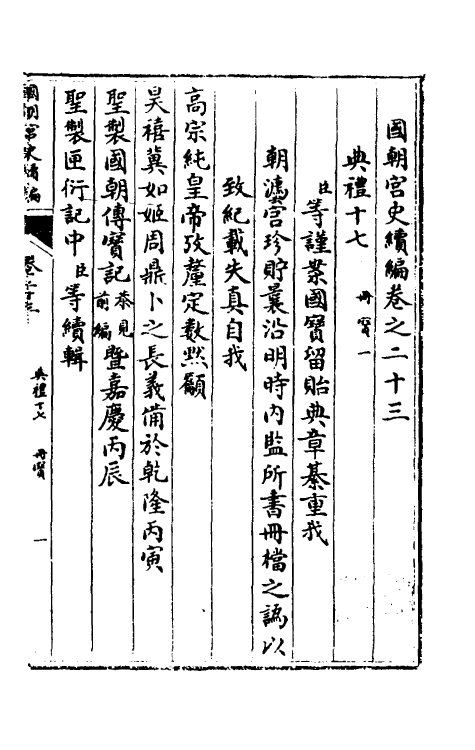 國朝宮史續編卷之二十三
典禮十七 冊寶一
臣等謹案國寶留貽典章綦重我
朝瀍宫珍貯曩沿明時内監所書冊檔之譌以
致紀載失真自我
高宗純皇帝攷釐定數默籲
昊禧冀如姬周鼎卜之長義備於乾隆丙寅
聖製國朝傳寶記恭見前編暨嘉慶丙辰
聖製匣衍記中臣等續輯
國朝宮史續編
卷二十三
典禮十七 冊寶
一